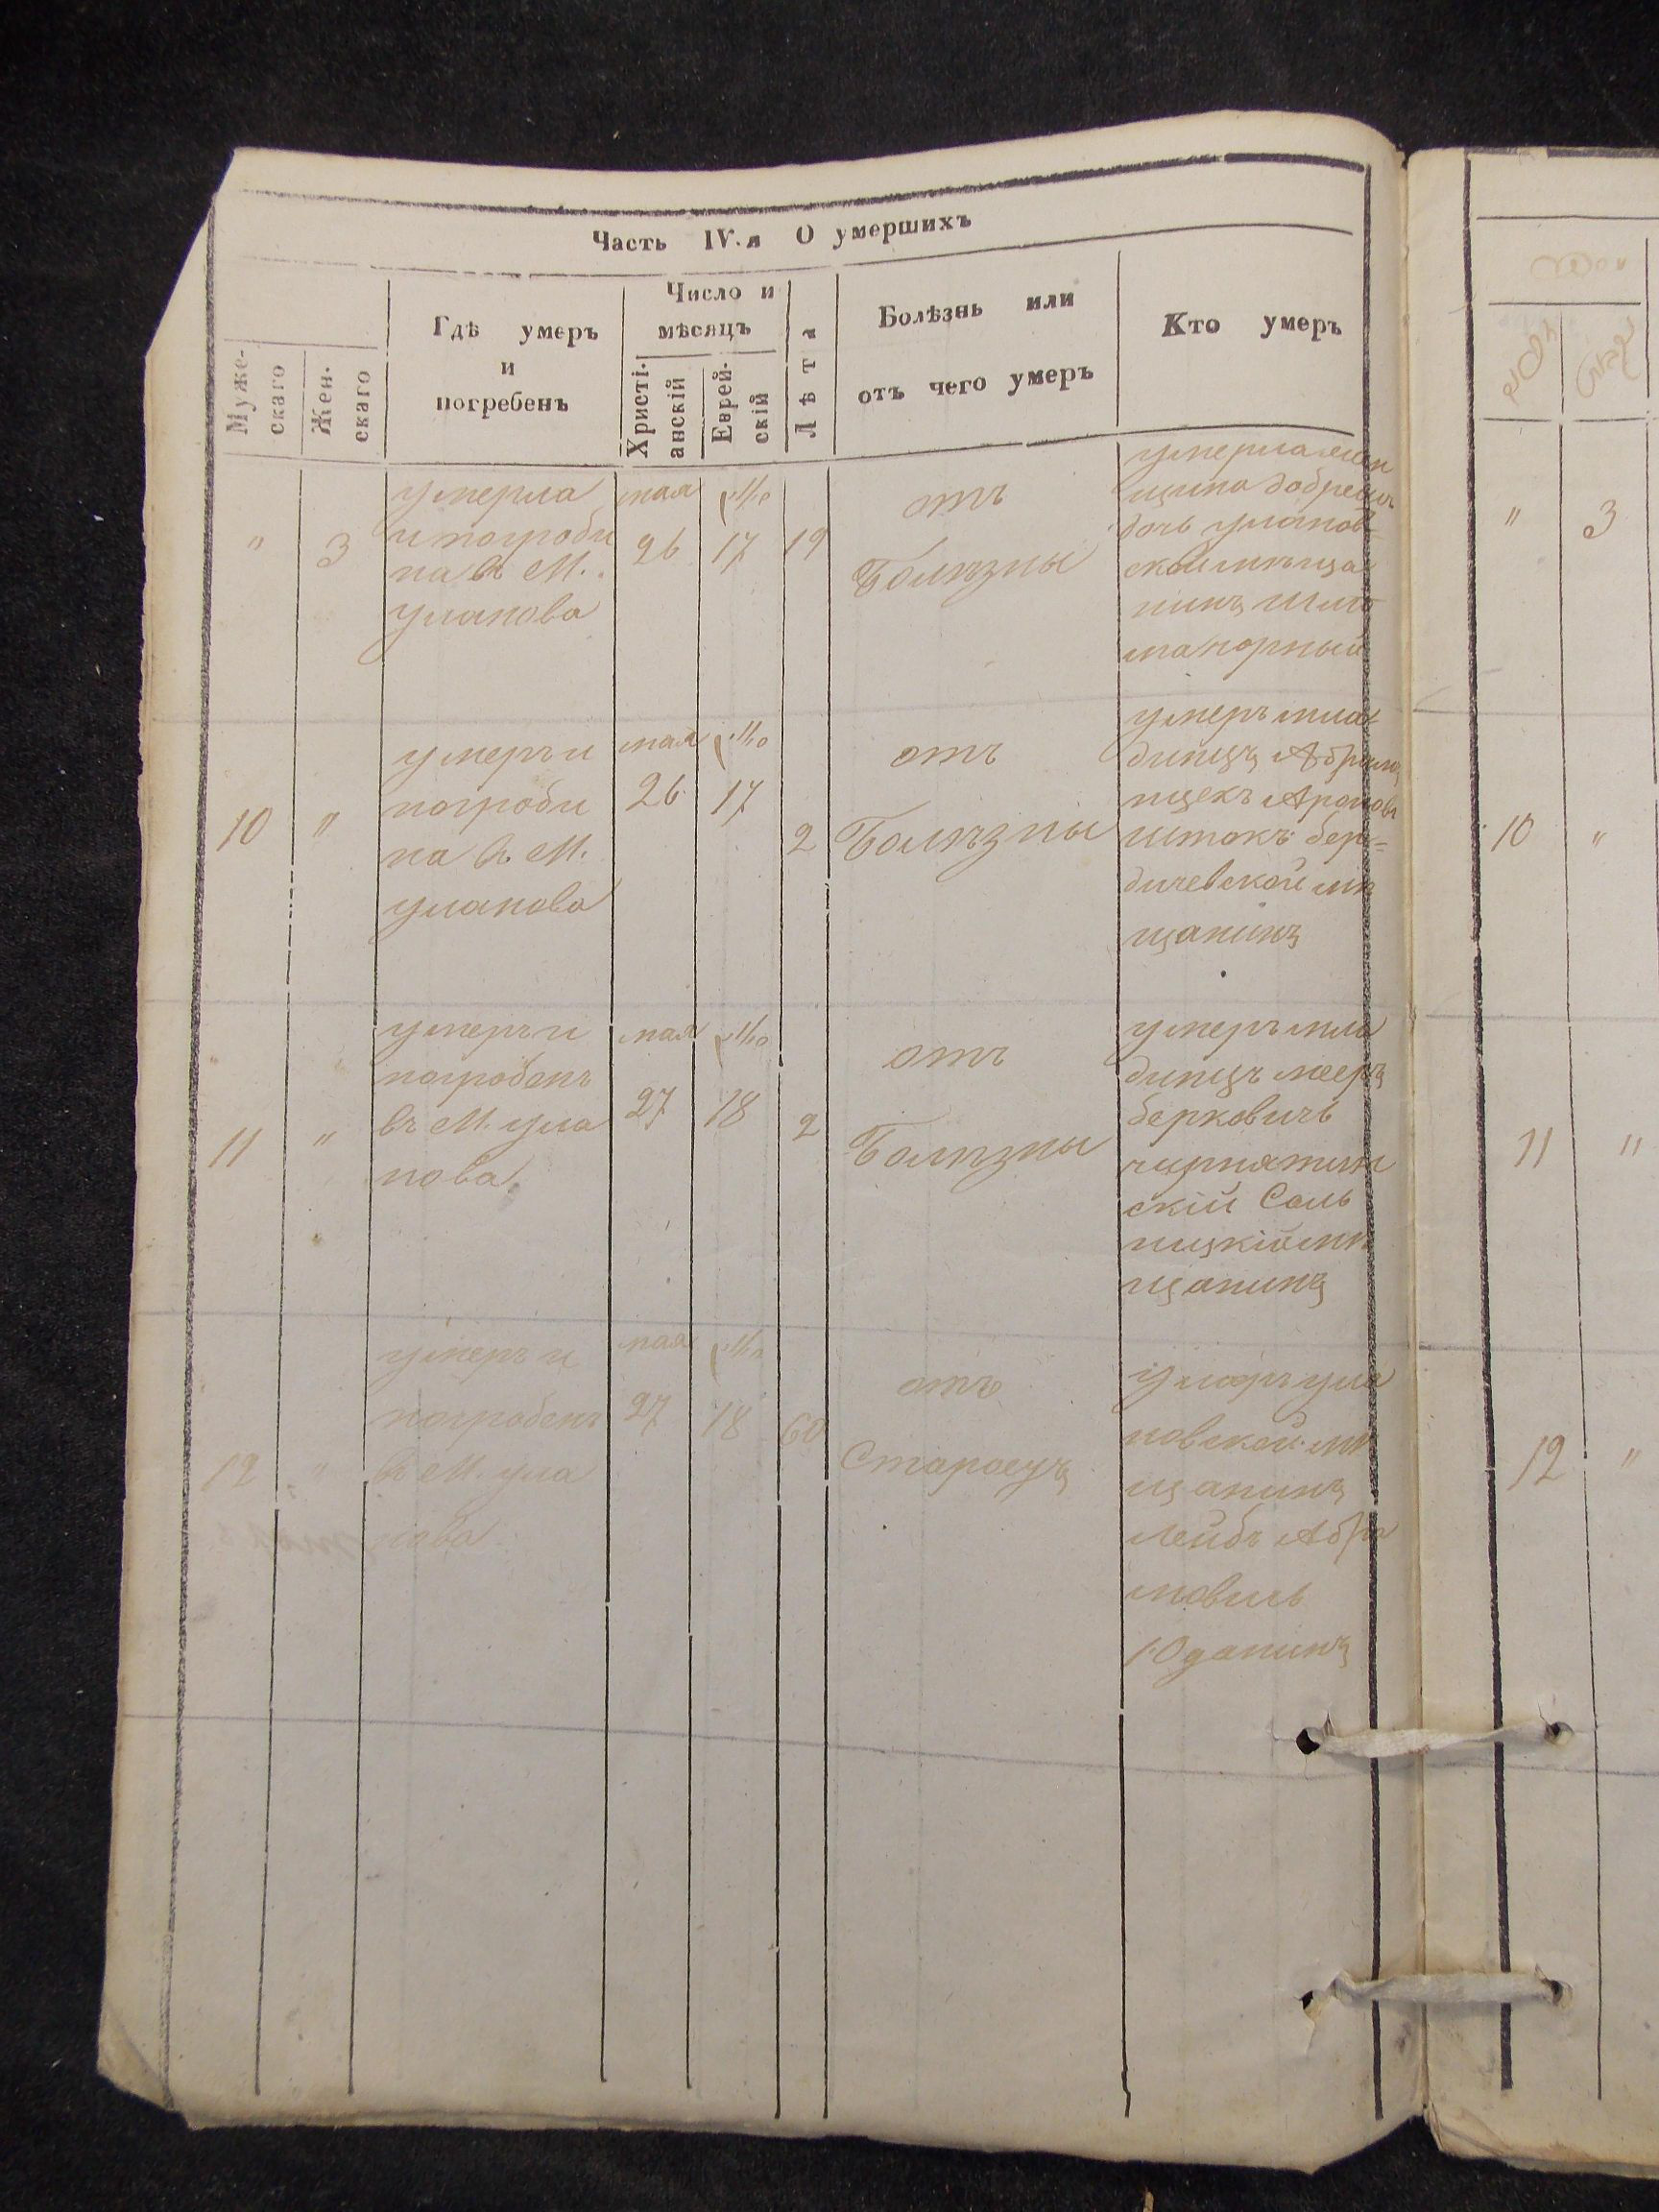 Часть IV.я О умершихъ
Муже-
скаго
Жен-
скаго
Гдѣ умеръ
и
погребенъ
Число и
мѣсяцъ
Христі-
анскій
Еврей-
скій
Лѣта
Болѣзнь или
отъ чего умеръ
Кто умеръ
" 3
умерла
и погроби
на въ М.
уланова
мая
26
17
19
отъ
Болѣзны
щина
дочь уланов
ской мѣща
нинъ
10 "
умеръ и
погроби
на въ М.
уланова
мая
26
17
2
отъ
Болѣзны
умеръ мла
динецъ Абрамъ
ицекъ Ароновъ
Штокъ бер=
дичевской мѣ
щанинъ
11 "
умеръ и
погробенъ
въ М. ула
нова
мая
27
18
2
отъ
Болѣзны
умеръ мла
динецъ мееръ
берковичъ
скій Саль
ницкій мѣ
щанинъ
12 "
умеръ и
погробенъ
въ М. ула
нова
мая
27
18
60
отъ
умеръ ула
новской мѣ
щанинъ
Лейбъ Абра
мовичъ
" 3
10 "
11 "
12 "